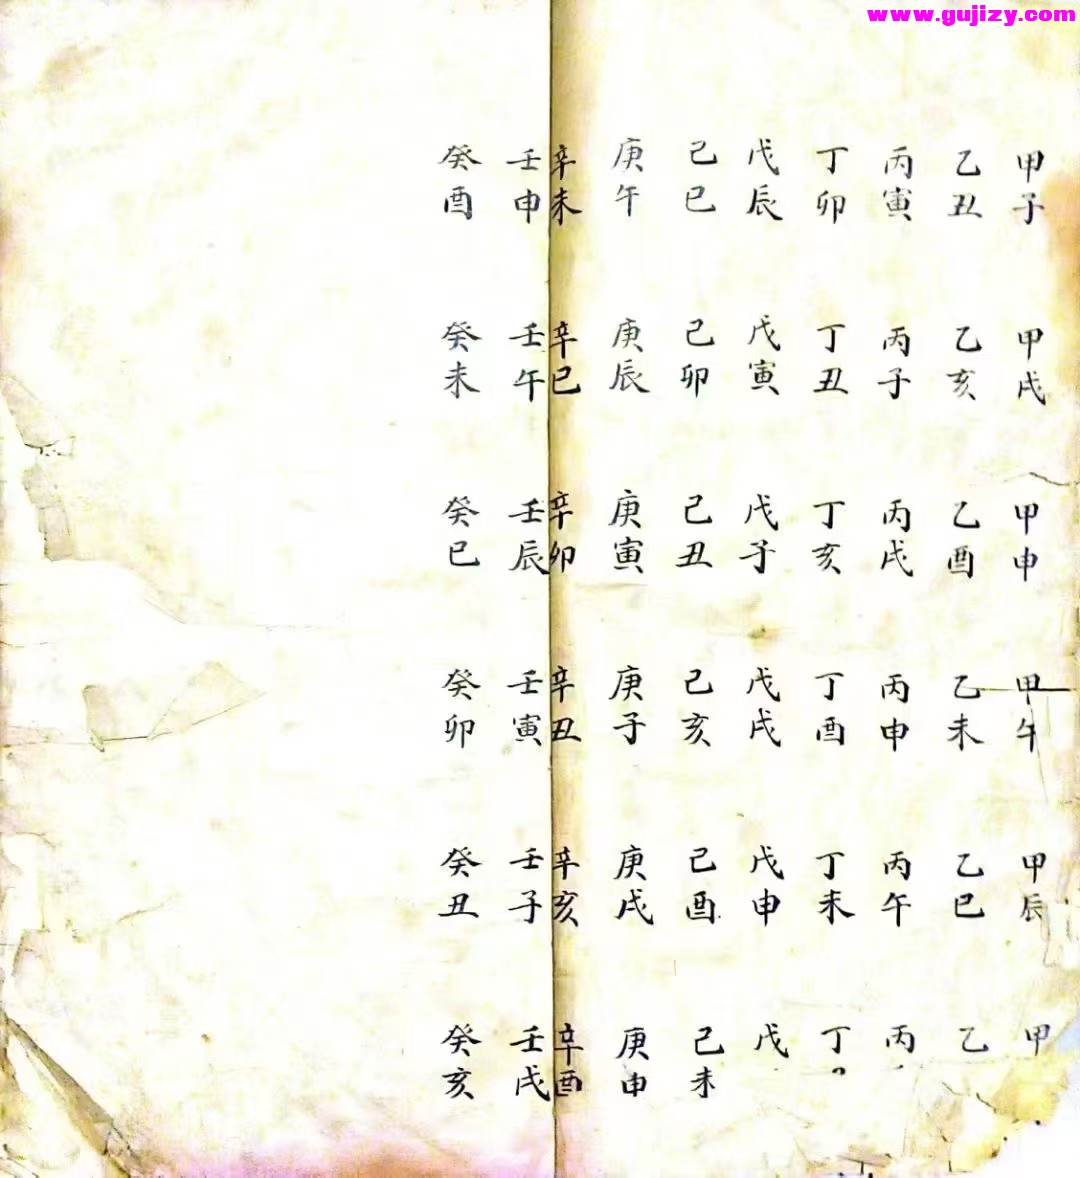 www.gujizy.com
甲子 乙丑 丙寅 丁卯 戊辰 己巳 庚午 辛未 壬申 癸酉
甲戌 乙亥 丙子 丁丑 戊寅 己卯 庚辰 辛巳 壬午 癸未
甲申 乙酉 丙戌 丁亥 戊子 己丑 庚寅 辛卯 壬辰 癸巳
甲午 乙未 丙申 丁酉 戊戌 己亥 庚子 辛丑 壬寅 癸卯
甲辰 乙巳 丙午 丁未 戊申 己酉 庚戌 辛亥 壬子 癸丑
甲 乙 丙 丁 戊 己未 庚申 辛酉 壬戌 癸亥